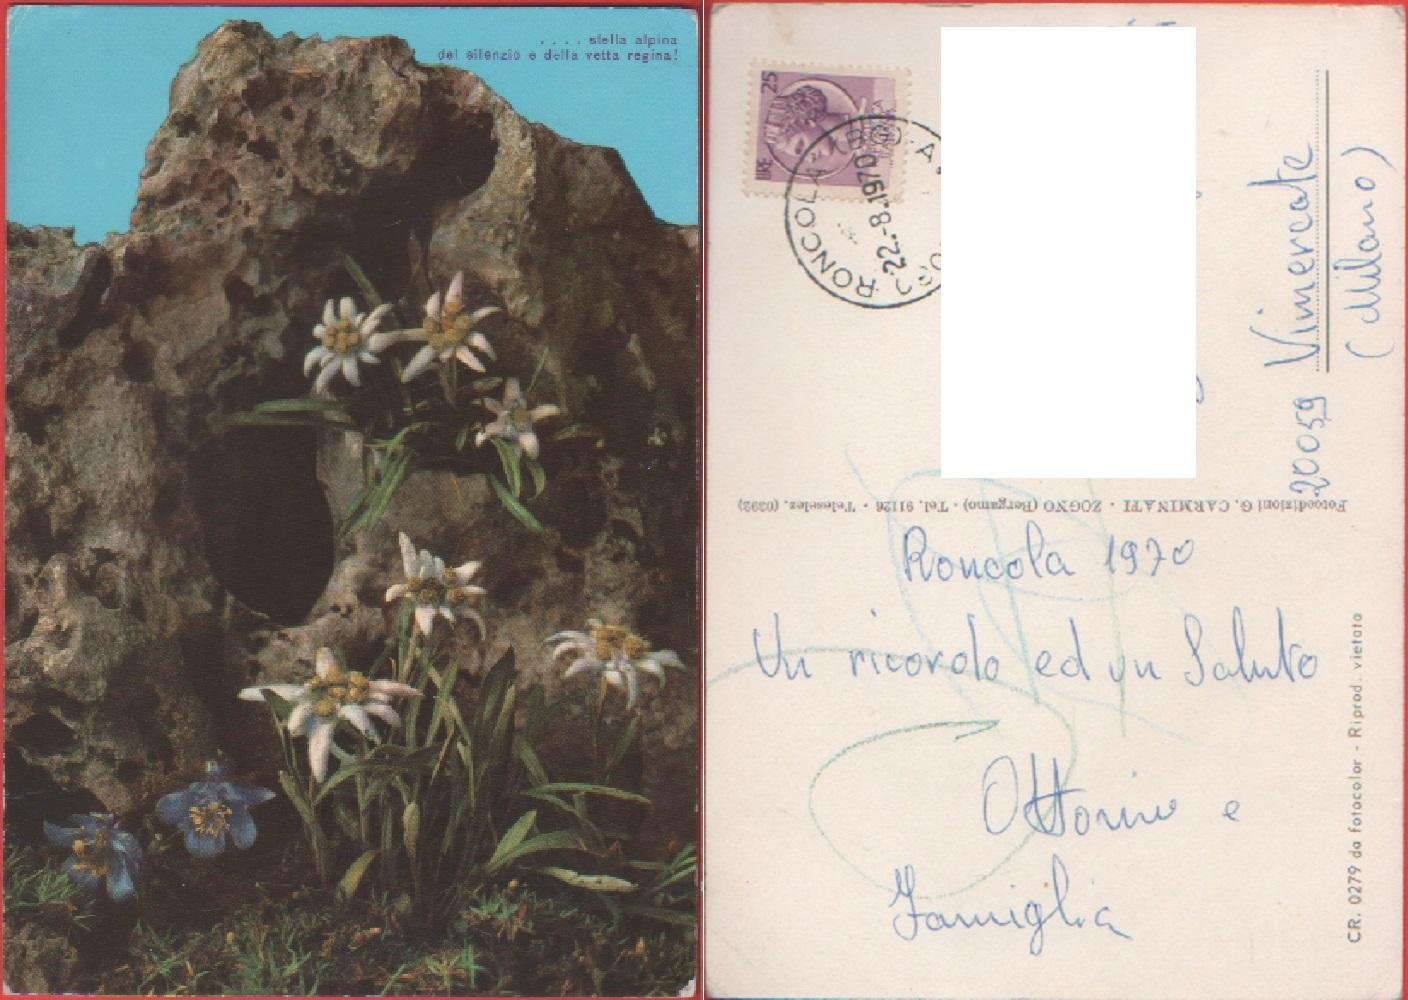 .... stella alpina
del silenzio e della vetta regina!
LIRE 25
RONCOLA
22.-8.1970
20059 Vimercate
(Milano)
Fotoedizioni G. CARMINATI - ZOGNO (Bergamo) - Tel. 91126 - Teleselez. (0392)
Roncola 1970
Un ricordo ed un Saluto
Ottorino e
Famiglia
CR. 0279 da fotocolor - Riprod. vietata